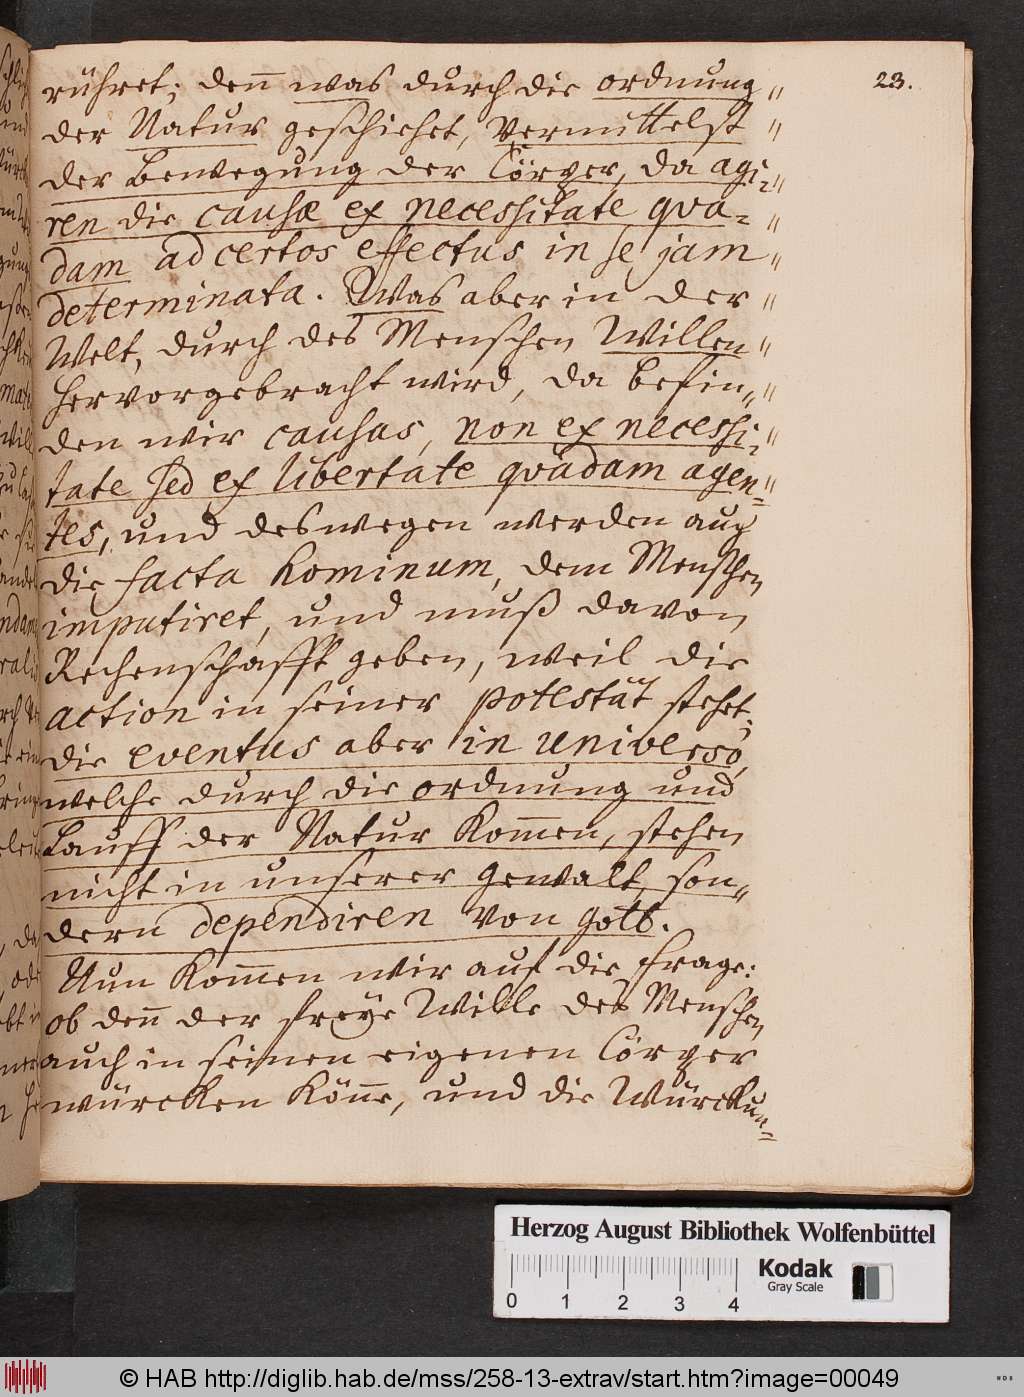 23.
rühret; deñ was durch die ordnung "
der Natur geschiehet, vermittelst "
der Bewegung der Cörper, da agi= "
ren die causæ ex necessitate quâ= "
dam ad certos effectus in se jam "
determinata. Was aber in der "
Welt, durch des Menschen Willen "
hervorgebracht wird, da befin= "
den wir causas, non ex necessi= "
tate sed ex libertate quâdam agen= "
tes, und deswegen werden auch
die facta hominum, dem Menschen
imputiret, und muß davon
Rechenschafft geben, weil die
action in seiner potestät stehet;
die eventus aber in universo,
welche durch die ordnung und
Lauff der Natur kom̄en, stehen
nicht in unserer gewalt, son=
dern dependiren von Gott.
Nun kom̄en wir auf die frage:
ob deñ der freye Wille des Menschen
auch in seinen eigenen Cörper
würcken köñe, und die Würckun=
Herzog August Bibliothek Wolfenbüttel
0 1 2 3 4
Kodak
Gray Scale
© HAB http://diglib.hab.de/mss/258-13-extrav/start.htm?image=00049